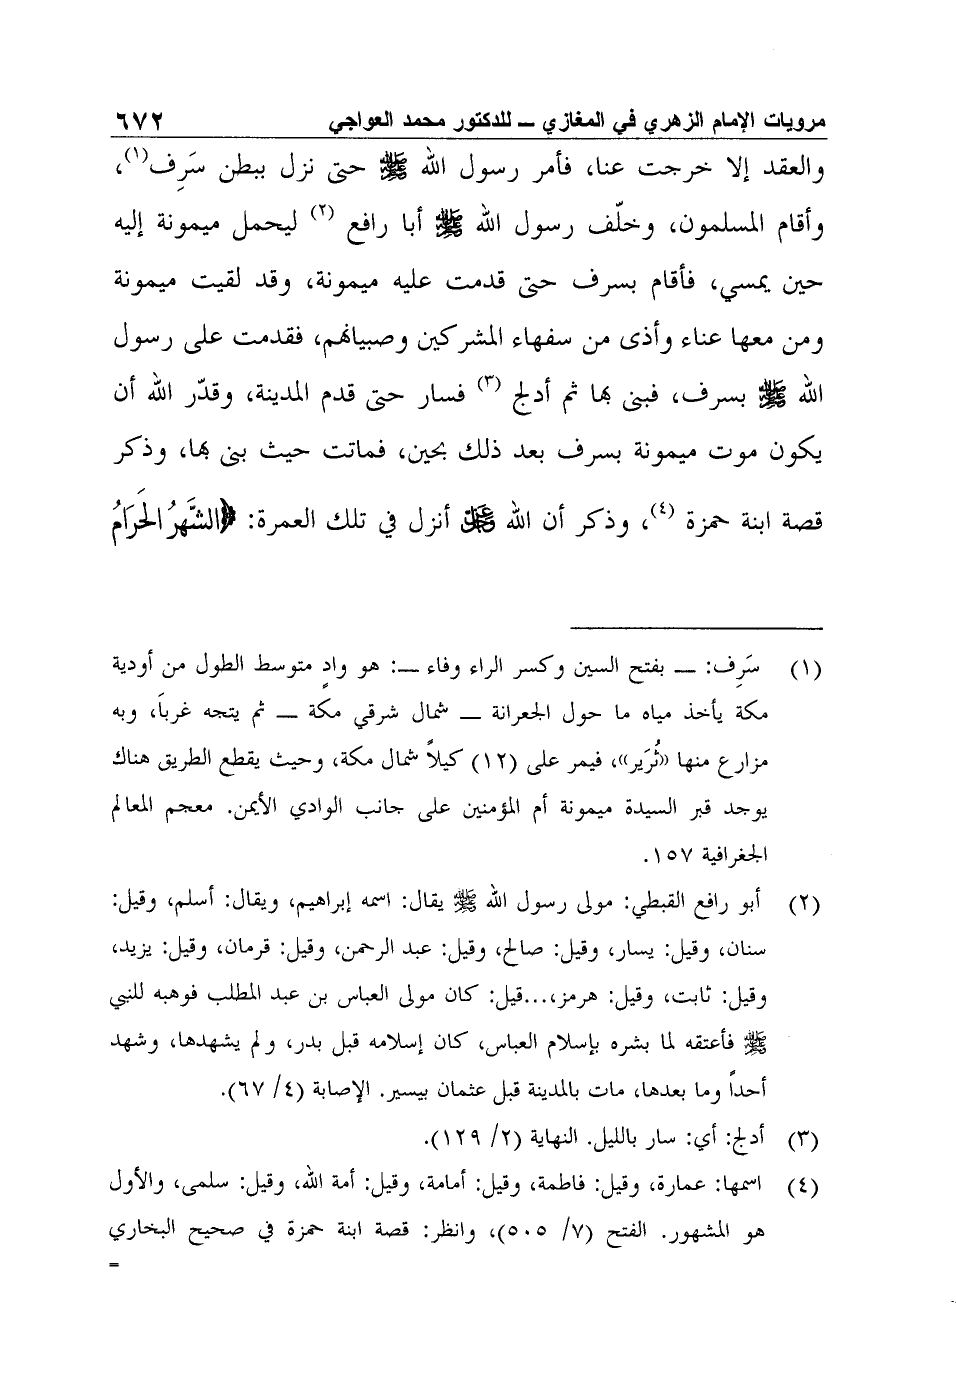 مرويات الإمام الزهري في المغازي ــ للدكتور محمد العواجي ٦٧٢
والعقد إلا خرجت عنا، فأمر رسول الله ﷺ حتى نزل ببطن سَرِف(١)،
وأقام المسلمون، وخلّف رسول الله ﷺ أبا رافع (٢) ليحمل ميمونة إليه
حين يمسي، فأقام بسرف حتى قدمت عليه ميمونة، وقد لقيت ميمونة
ومن معها عناء وأذى من سفهاء المشركين وصبيانهم، فقدمت على رسول
الله ﷺ بسرف، فبنى بها ثم أدلج (٣) فسار حتى قدم المدينة، وقدّر الله أن
يكون موت ميمونة بسرف بعد ذلك بحين، فماتت حيث بنى بها، وذكر
قصة ابنة حمزة (٤)، وذكر أن الله ﷻ أنزل في تلك العمرة: ﴿الشَّهْرُ الْحَرَامُ
(١) سَرِف: ــ بفتح السين وكسر الراء وفاء ــ: هو وادٍ متوسط الطول من أودية
مكة يأخذ مياه ما حول الجعرانة ــ شمال شرقي مكة ــ ثم يتجه غرباً، وبه
مزارع منها «ثُرَير»، فيمر على (١٢) كيلاً شمال مكة، وحيث يقطع الطريق هناك
يوجد قبر السيدة ميمونة أم المؤمنين على جانب الوادي الأيمن. معجم المعالم
الجغرافية ١٥٧.
(٢) أبو رافع القبطي: مولى رسول الله ﷺ يقال: اسمه إبراهيم، ويقال: أسلم، وقيل:
سنان، وقيل: يسار، وقيل: صالح، وقيل: عبد الرحمن، وقيل: قرمان، وقيل: يزيد،
وقيل: ثابت، وقيل: هرمز،...قيل: كان مولى العباس بن عبد المطلب فوهبه للنبي
ﷺ فأعتقه لما بشره بإسلام العباس، كان إسلامه قبل بدر، ولم يشهدها، وشهد
أحداً وما بعدها، مات بالمدينة قبل عثمان بيسير. الإصابة (٤/ ٦٧).
(٣) أدلج: أي: سار بالليل. النهاية (٢/ ١٢٩).
(٤) اسمها: عمارة، وقيل: فاطمة، وقيل: أمامة، وقيل: أمة الله، وقيل: سلمى، والأول
هو المشهور. الفتح (٧/ ٥٠٥)، وانظر: قصة ابنة حمزة في صحيح البخاري
=